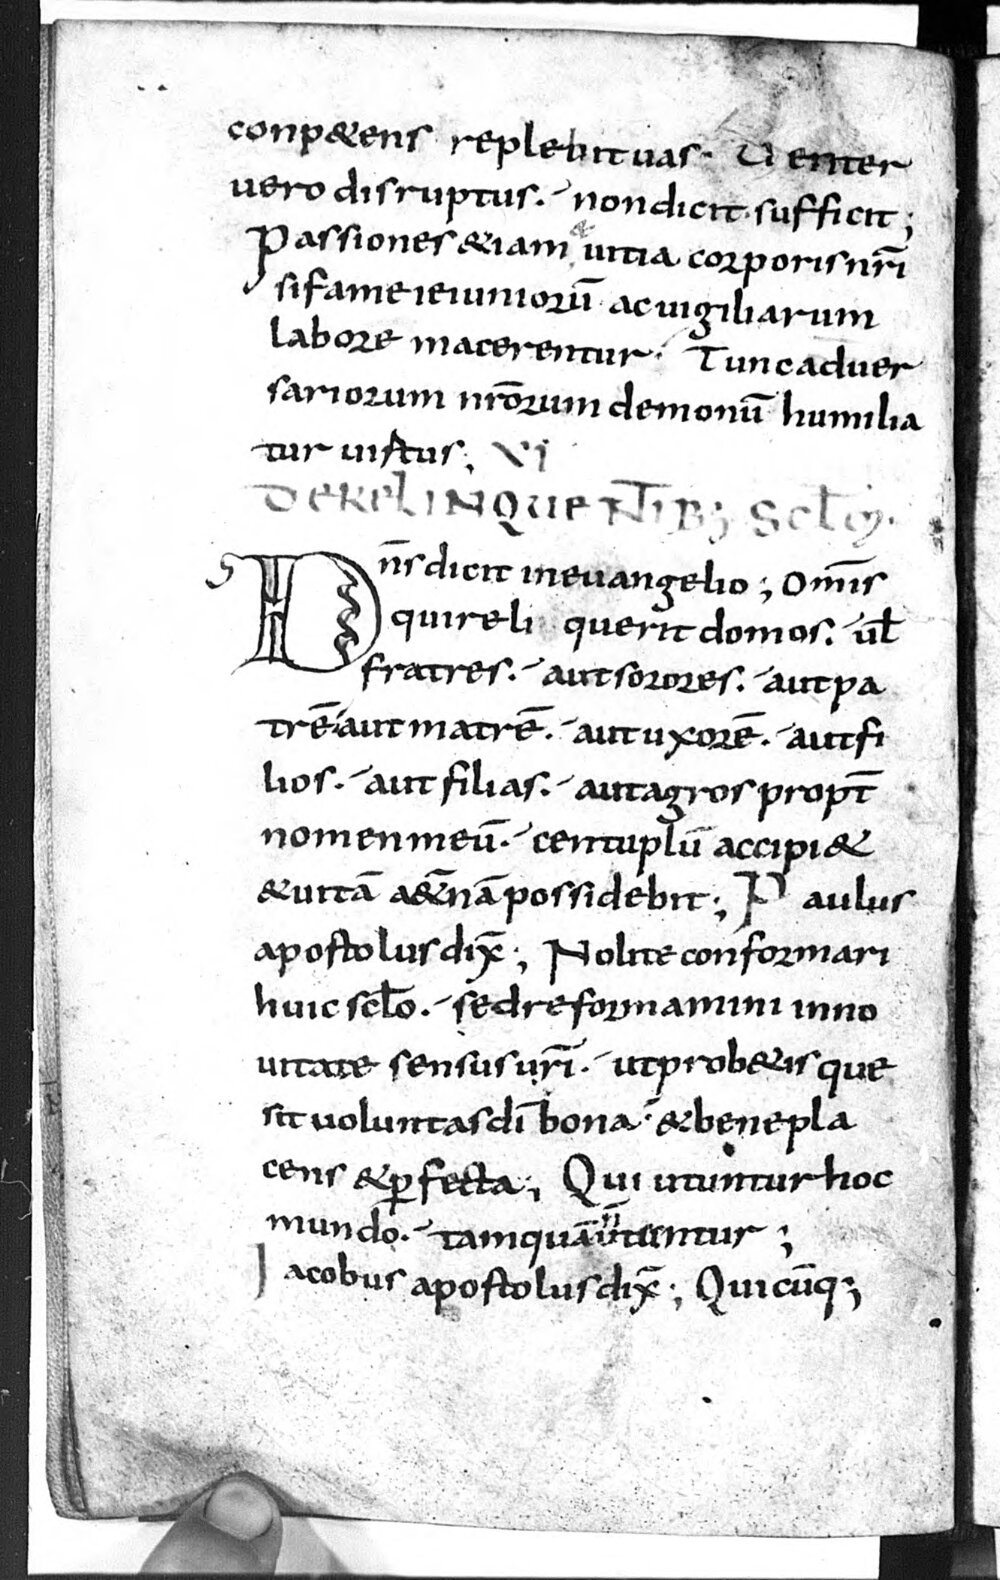 conp&ens replebit uas. Uenter
uero disruptus. non dicit. sufficit;
Passiones &iam & uitia corporis nr̄i
si fame ieiuniorū ac uigiliarum
labore macerentur. Tunc aduer
sariorum nr̄orum demonū humilia
tur uistus; XI
DE RELINQUENTIB; SCL̄M.
Dn̄s dicit in euangelio; Om̄is
qui reli querit domos. ul̄
fratres. aut sorores. aut pa
trē aut matrē. aut uxorē. aut fi
lios. aut filias. aut agros propt̄
nomen meū. centuplū accipi&
& uitā a&̄nā possidebit; Paulus
apostolus dix̄; Nolite conformari
huic scl̄o. sed reformamini in no
uitate sensus ur̄i. ut prob&is que
sit uoluntas dī bona. & benepla
cens & ꝑfecta; Qui utuntur hoc
mundo. tamquā n̄ utantur;
Iacobus apostolus dix̄; Quicūq;